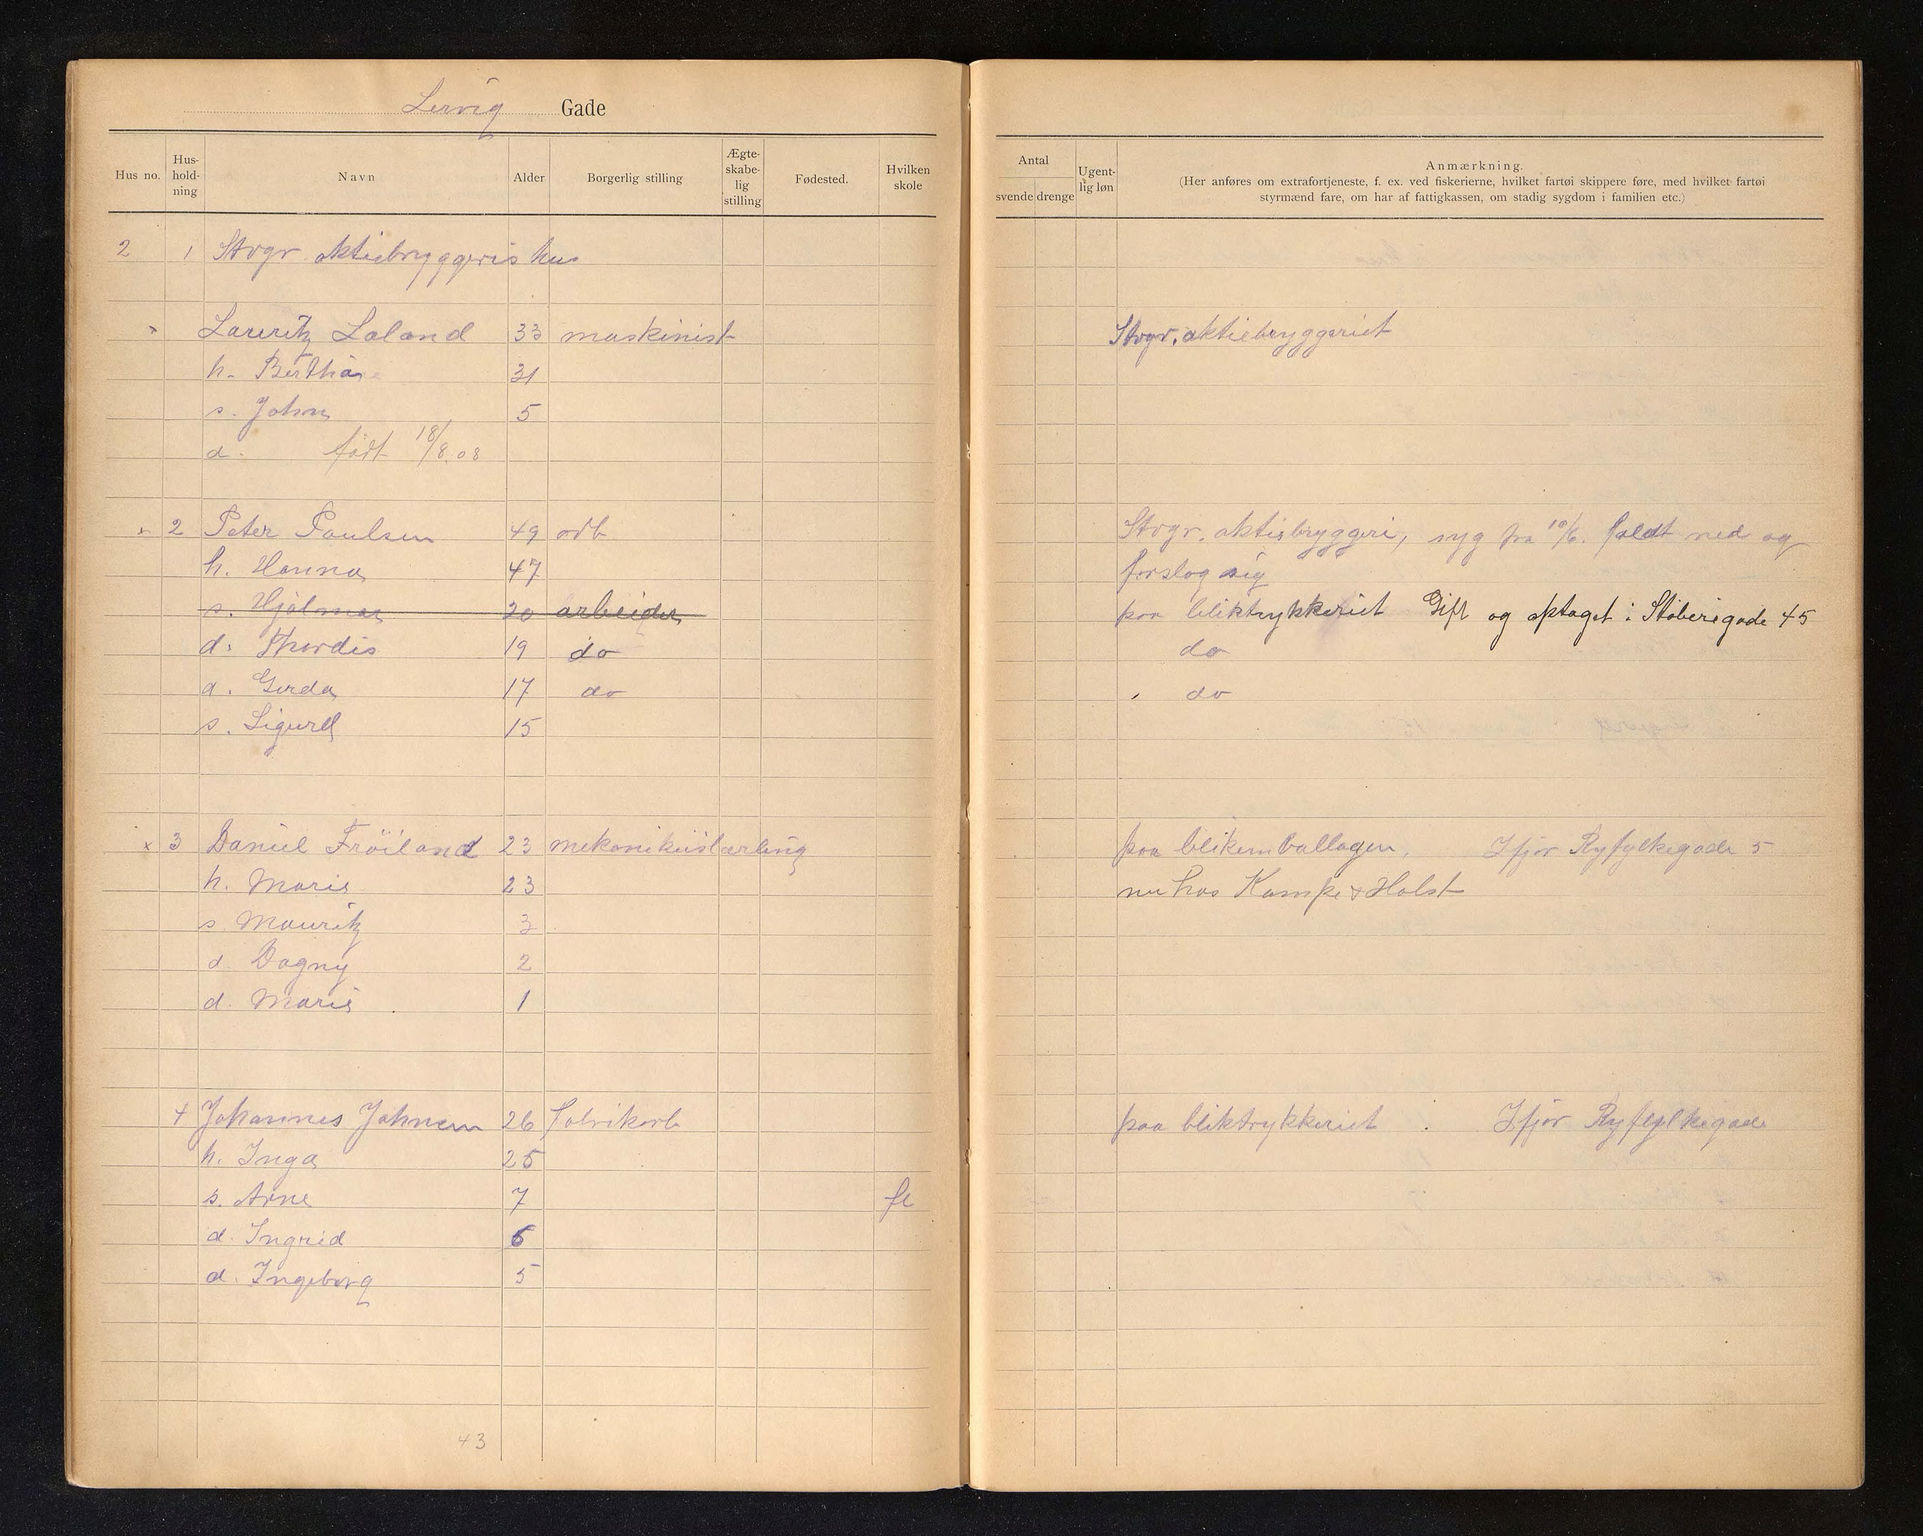 Lervig Gade
Hus no. Hus-hold-ning Navn Alder Borgerlig stilling Ægte-skabe-lig stilling Fødested. Hvilken skole
Antal svende drenge Ugent-lig løn Anmærkning.
(Her anføres om extrafortjeneste, f. ex. ved fiskerierne, hvilket fartøi skippere føre, med hvilket fartøi
styrmænd fare, om har af fattigkassen, om stadig sygdom i familien etc.)
2 1 Stvgr aktiebryggeris hus
Lauritz Laland 33 maskinist Stvgr. aktiebryggeriet
h. Bertha 31
s. John 5
d. født 18/8.08
x 2 Peter Paulsen 49 arb Stvgr. aktiebryggeri, syg fra 10/6. faldt ned og
h. Hanna 47 forslog sig
s. Hjalmar 20 arbeider paa bliktrykkeriet Gift og optaget i Støberigade 45
d. Thordis 19 do do
d. Gerda 17 do do
s. Sigurd 15
x 3 Daniel Frøiland 23 mekanikerlærling paa blikemballagen, Ifjor Ryfylkegade 5
h. Marie 23 nu hos Kampe & Holst
s Mauritz 3
d. Dagny 2
d. Marie 1
4 Johannes Johnsen 26 fabrikarb paa bliktrykkeriet . Ifjor Ryfylkegade
h. Inga 25
s. Arne 7 fl
d. Ingrid 6
d. Ingeborg 5
43